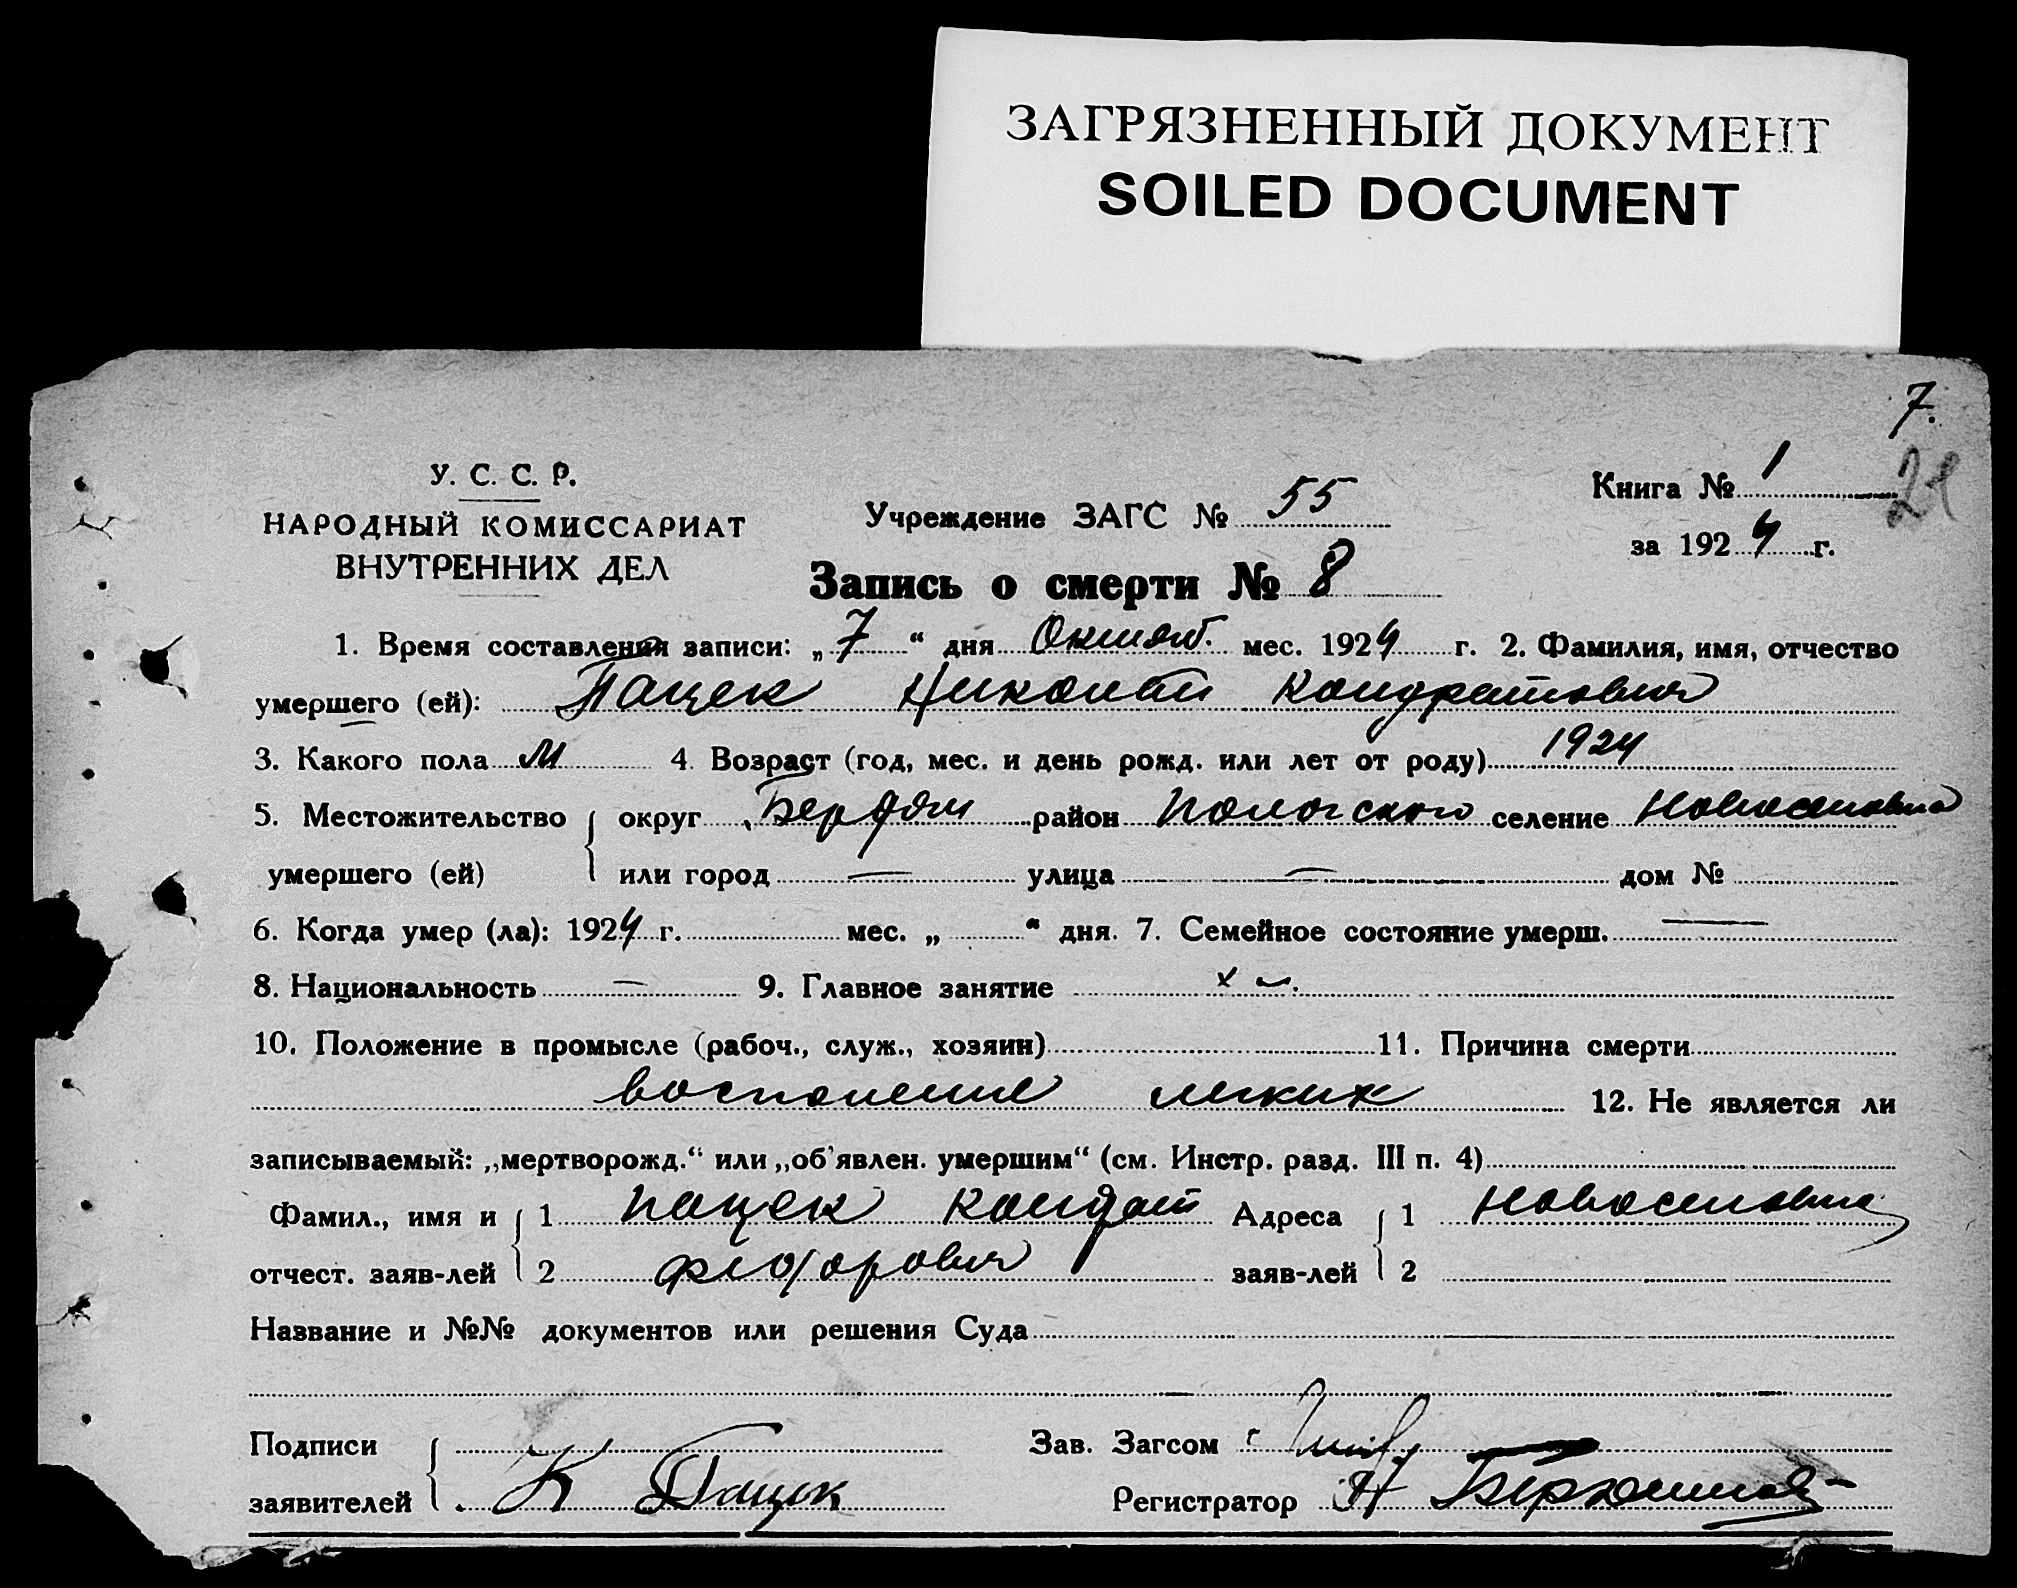 ЗАГРЯЗНЕННЫЙ ДОКУМЕНТ
SOILED DOCUMENT
7.
21
У. С. С. Р.
НАРОДНЫЙ КОМИССАРИАТ
ВНУТРЕННИХ ДЕЛ
Учреждение ЗАГС № 55
Книга № 1
за 1924 г.
Запись о смерти № 8
1. Время составления записи: „7“ дня Октяб. мес. 1924 г. 2. Фамилия, имя, отчество
умершего (ей): Пацек Николай Кондратович
3. Какого пола м 4. Возраст (год, мес. и день рожд. или лет от роду) 1924
5. Местожительство округ Бердян район Пологского селение Новоселовка
умершего (ей) или город — улица — дом №
6. Когда умер (ла): 1924 г. мес. „ “ дня. 7. Семейное состояние умерш. —
8. Национальность — 9. Главное занятие
10. Положение в промысле (рабоч., служ., хозяин) 11. Причина смерти
восполение легких 12. Не является ли
записываемый: „мертворожд.“ или „об'явлен. умершим“ (см. Инстр. разд. III п. 4)
Фамил., имя и 1 Пацек Кондрат Адреса 1 Новоселовка
отчест. заяв-лей 2 Фіодорович заяв-лей 2
Название и №№ документов или решения Суда
Подписи Зав. Загсом
заявителей К Пацек Регистратор